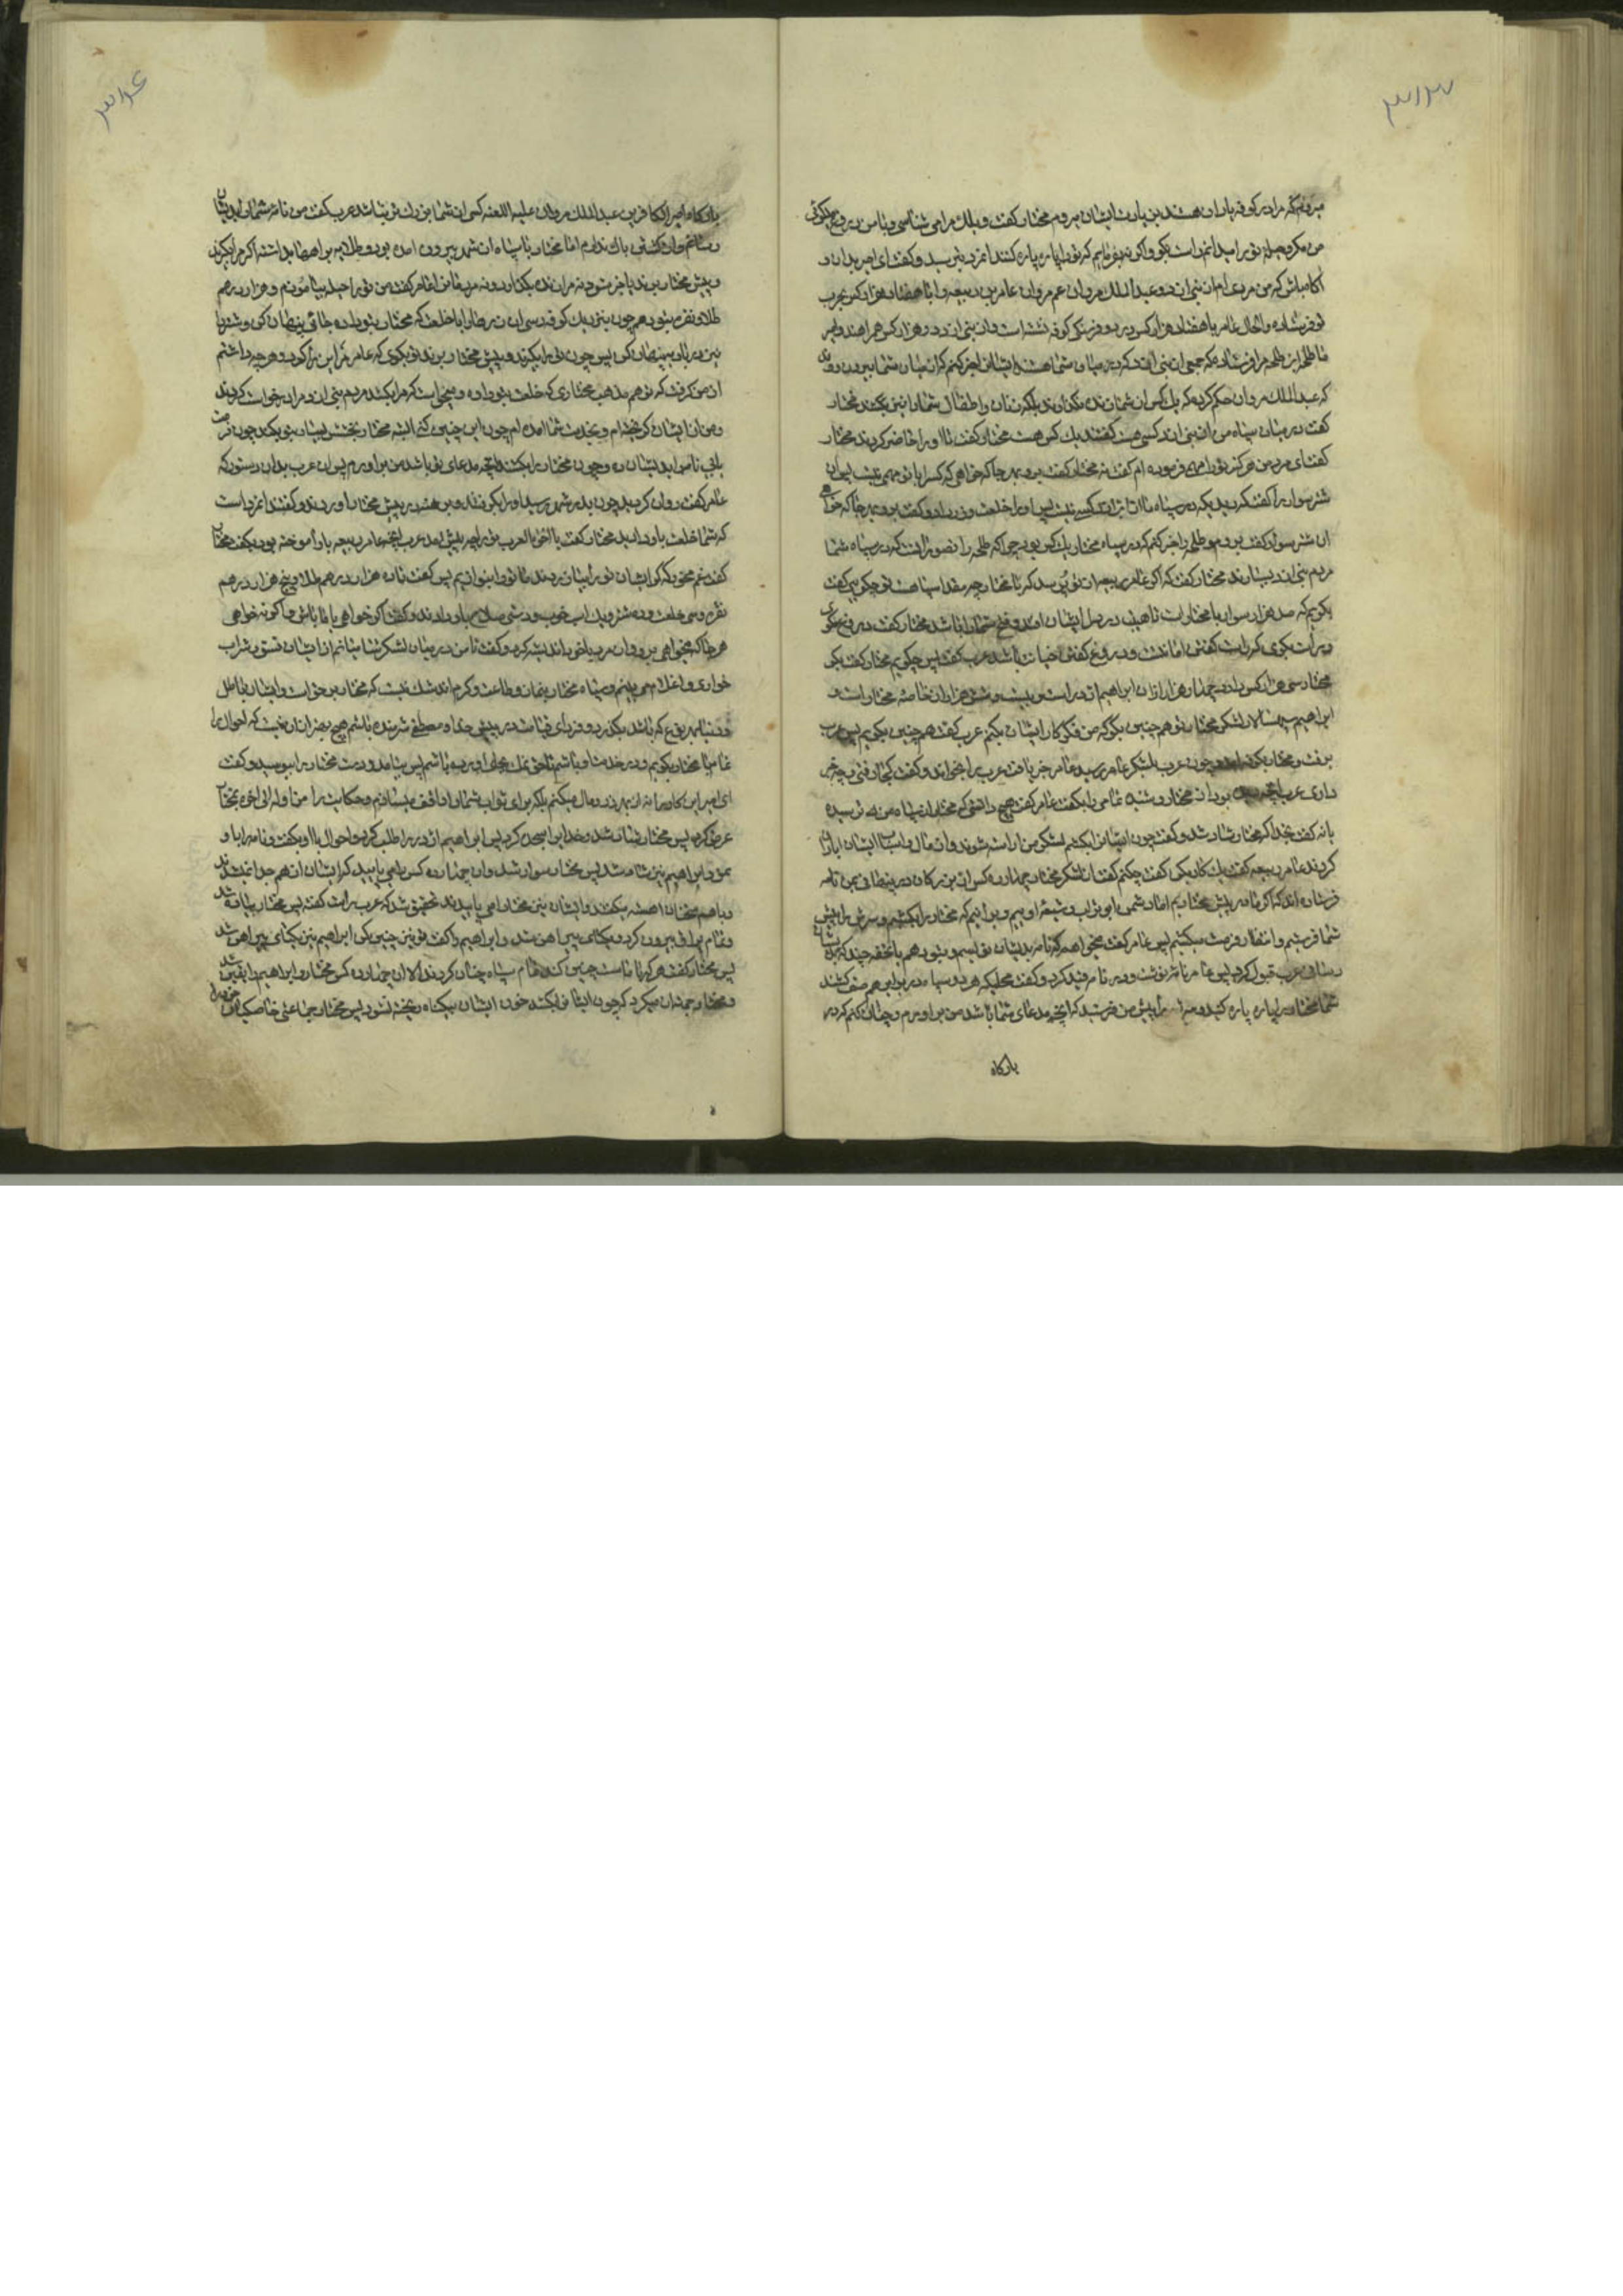 ۳۱۳
میروم که مرا در کوفه یاران هستند بزیارت ایشان میروم مختار گفت ویلك مرا می شناسی و با من دروغ میکوئی
من مکر و حیله تو را میدانم راست بکو و اکر نه بفرمایم که تو را پاره پاره کنند انمرد بترسید و گفت ای امیر بدان و
اکاه باش که من مردی ام از بنی اند و عبدالملك مروان عم مروان عامر بن ربیعه را با هفتاد هزار کس بحرب
تو فرستاده و الحال عامر با هفتاد هزار کس در دو فرسنکی کوفه نشسته است و از بنی اند دو هزار کس همراهند و امیر
ما طلحه ابن طلحه مرا فرستاده که جمعی از بنی اند که در میان شما هستند ایشانرا خبر کنم که از میان شما بیرون روند
که عبدالملك مروان حکم کرده که یك کس از شما زنده نکذارند بلکه زنان و اطفال شما را نیز بکشند مختار
گفت در میان سپاه من از بنی اند کسی هست گفتند یك کس هست مختار گفت تا او را حاضر کردند مختار
گفت ای مرد من هرکز تو را مهمی فرموده ام گفت نه مختار گفت برو بهر جا که خواهی که کسرا با تو مهمی نیست پس ان
شتر سوار را گفت که دیدی که در سپاه ما از ایشان کسی نیست پس او را خلعت و زر داد و گفت برو بهر جا که خواهی
ان شتر سوار گفت بروم و طلحه را خبر کنم که در سپاه مختار یك کس بود چرا که طلحه را تصور آنست که در سپاه شما
مردم بنی اند بسیارند مختار گفت که اکر عامر ربیعه از تو پرسد که با مختار چه مقدار سپاه هست تو چکویی گفت
بکویم که صد هزار سوار با مختار است تا هیبت در دل ایشان افتد و فتح شما را باشد مختار گفت دروغ مکوی
و راست بکوی که راست گفتن امانت و دروغ گفتن خیانت باشد عرب گفت پس چکویم مختار گفت بکو
مختار سی هزار کس دارد چهار هزار از ان ابراهیم اژدر است و بیست و شش هزار از خاصه مختار است و
ابراهیم سپهسالار لشکر مختار تو هم چنین بکو که من فکر کار ایشان بکنم عرب گفت هم چنین بکویم پس عرب
برفت و مختار بکوفه امد و چون عرب بلشکر عامر رسید عامر خبر یافت عرب را بخواند و گفت کجا رفتی و چه خبر
داری عرب انچه دیده بود از مختار و شنیده تمامی را بکفت عامر گفت هیچ دانستی که مختار از سپاه من می ترسیده
یا نه گفت بخدا که مختار شاد شد و گفت چون ایشانرا بکشیم لشکر من اراسته شوند و از مال و اسباب ایشان
کردند عامر ربیعه گفت یك کار بکن گفت چکنم گفت از لشکر مختار چهارده کس از بزرکان در پنهانی بمن نامه
فرستاده اند که اکر ما در پیش مختاریم اما از دشمن ابو تراب و شیعه اوییم و بر آنیم که مختار را بکشیم و سرش را پیش
شما فرستیم و انتظار فرصت میکشیم پس عامر گفت میخواهم که نامه بدیشان نویسم و بتو دهم با تحفه چند که بدیشان
رسانی عرب قبول کرد پس عامر نامه نوشت و در نامه قید کرد و گفت محلیکه هر دو سپاه در برابر هم صف کشند
شما مختار را پاره پاره کنید و سر او را پیش من فرستید که انچه مدعای شما باشد من براورم و چنان کنم که در
بارکاه
۳۱۴
بارکاه امیر الکافرین عبدالملك مروان علیه اللعنه کسی از شما بزرك تر نباشد عرب گفت من نامه شما را بدیشان
رسانم و از کشتن باك ندارم اما مختار با سپاه از شهر بیرون امده بود و طلایه بر راهها بداشته اکر مرا بکیرند
و پیش مختار برند یا خبر شود نه مرا زنده بکذارد و نه مردمان را عامر گفت من تو را حیله بیاموزم و هزار درهم
طلا و نقره بتو دهم چون بنزدیك کوفه رسی ان زرها را با خلعت که مختار بتو داده جائی پنهان کن و شتر را
نیز در جایی پنهان کن پس چون تو را بکیرند و پیش مختار برند تو بکوی که عامر مرا این زا کرد و هر چه داشتم
از من کرفت که تو هم مذهب مختاری که خلعت بتو داده و میخواست که مرا بکشد مردم بنی اند مرا درخواست کردند
و من از ایشان کریخته ام و بخدمت شما امده ام چون این چنین کنی البته مختار بخشش بسیار بتو بکند چون فرصت
یابی نامه را بدیشان ده و چون مختار را بکشند انچه مدعای تو باشد من براورم پس ان عرب بدان دستور که
عامر گفت روان کردید چون بدر شهر رسید او را بکرفتند و برهنه در پیش مختار اوردند و گفتند انمرد است
که شما خلعت باو داد ید مختار گفت یا اخا العرب تو را چه پیش امد عرب انچه عامر ربیعه باو آموخته بود بکفت مختار
گفت غم مخور که اکر ایشان تو را بیازردند ما تو را بنوازیم پس گفت تا ده هزار درهم طلا و پنج هزار درهم
نقره و سی خلعت و ده شتر و یك اسب خوب و دستی سلاح باو دادند و گفت اکر خواهی با ما باش و اکر نه خواهی
هر جا که میخواهی برو و ان مرد با خود اندیشه کرده و گفت تا من در میان لشکر شامیانم از ایشان فسق و شراب
خواری و اغلام می بینم و سپاه مختار بنماز و طاعت و کرم اند شك نیست که مختار بر حق است و ایشان باطل
و دنیا بهر نوع که باشد بکذرد و فردای قیامت در پیش خدا و مصطفی شرمنده باشم هیچ به از ان نیست که احوال را
تمام با مختار بکویم و در خدمت او باشم تا حق نمك بجای اورده باشم پس بیامد و دست مختار را ببوسید و گفت
ای امیر این کار را نه از بهر زر و مال میکنم بلکه برای ثواب شما را واقف میسازم و حکایت را من اوله الی اخره بمختار
عرض کرد پس مختار شاد شد و خدا را سجده کرد پس ابراهیم اژدر را طلب کرد و احوال با او بکفت و نامه را باو
نمود ابراهیم نیز شاد شد پس مختار سوار شد و ان چهارده کس را می پایید که ایشان از هم جدا نمیشدند
و با هم سخنان اهسته میکفتند و ایشان نیز مختار را می پاییدند تحقیق شد که عرب راست گفته پس مختار پیاده شد
و تمام یراق بیرون کرد و یکتای پیراهن شد و ابراهیم را گفت تو نیز چنین کن ابراهیم نیز یکتای پیراهن شد
پس مختار گفت هر که با ماست چنین کند تمام سپاه چنان کردند الا ان چهارده کس مختار و ابراهیم را یقین شد
و مختار جهد ان میکرد که چون ایشانرا بکشد خون ایشان بیکناه ریخته نشود پس مختار جماعتی خاصکیان خود را